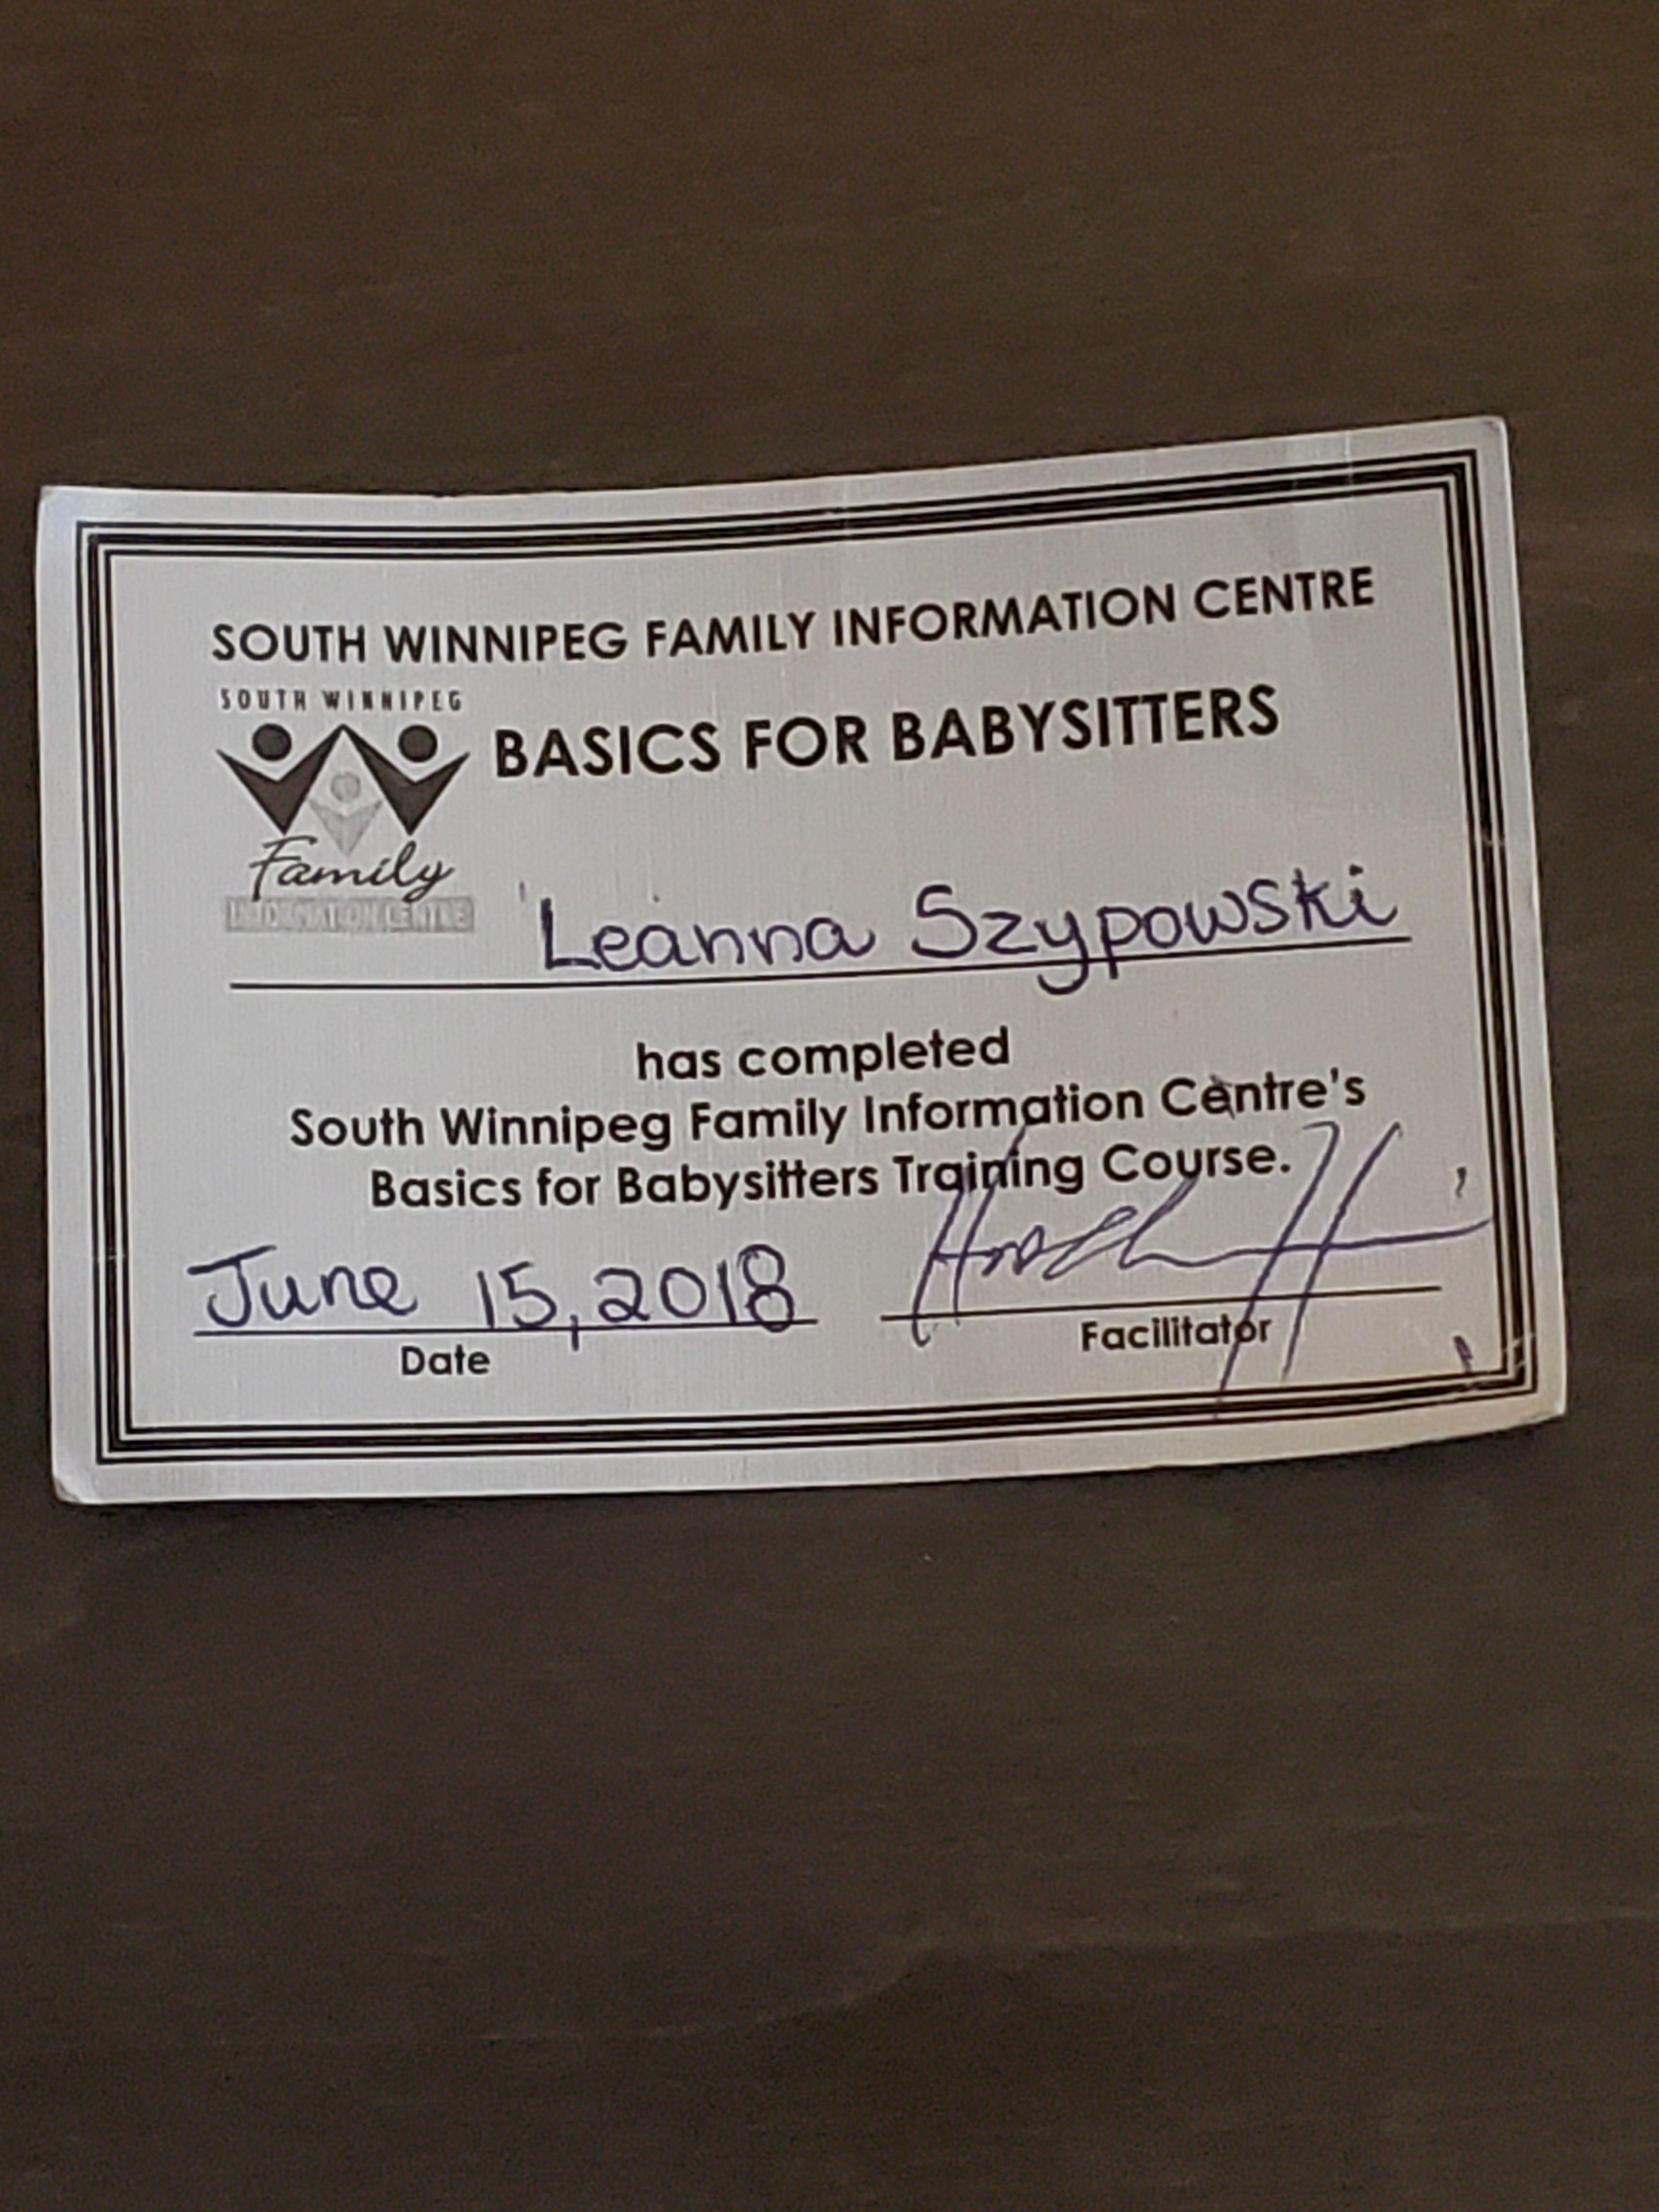 SOUTH WINNIPEG FAMILY INFORMATION CENTRE
SOUTH WINNIPEG
BASICS FOR BABYSITTERS
Family
INFORMATION CENTRE
Leanna Szypowski
has completed
South Winnipeg Family Information Centre's
Basics for Babysitters Training Course.
June 15, 2018
Date
Facilitator